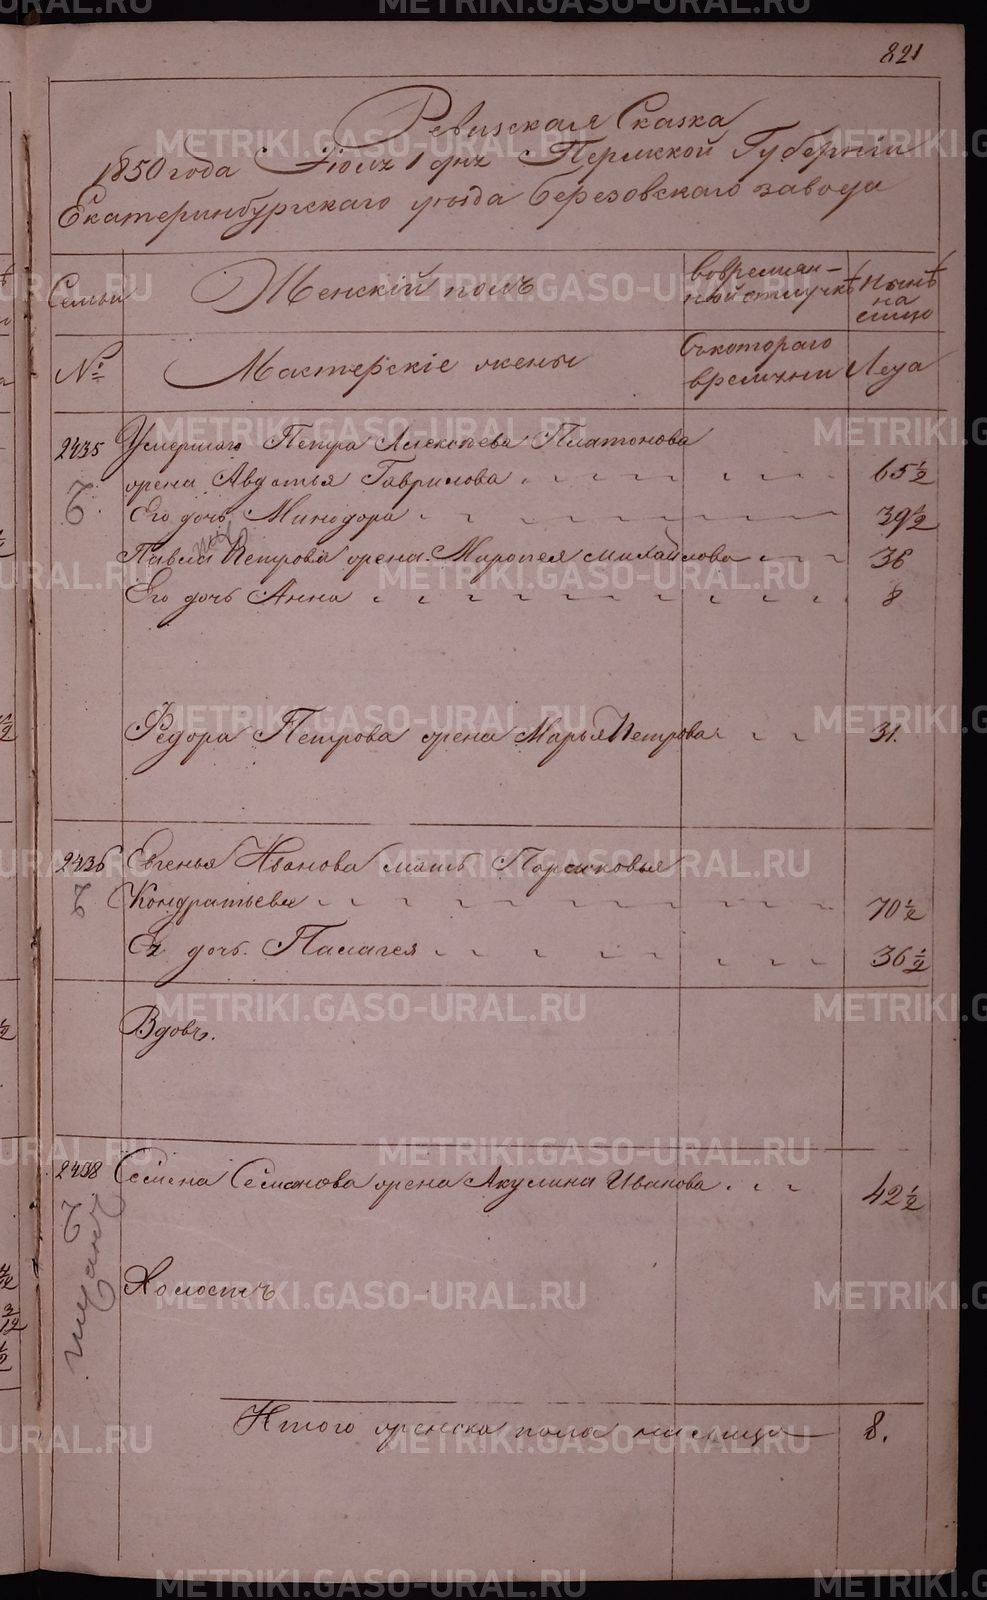 821
Ревизская Сказка
1850 года Июля 1 дня Пермской Губернии
Екатеринбургского уезда Березовского завода
Семьи
Женский полъ
Во времян-
ной отлучкѣ
Нынѣ
на
лицо
№
Мастерскіе жены
Съ котораго
времяни
Лета
2435 Умершаго Петра Алексѣева Платонова
жена Авдотья Гаврилова 65 ½
Его дочь Минодора 39 ½
Павла Петрова жена Маропея Михайлова 36
Его дочь Анна 8
Федора Петрова жена Марья Петрова 31.
2436 Евгенья Иванова мать Парасковья
Кондратьева 70 ½
Ея дочь Палагея 36 ½
Вдовъ.
2438 Семена Семонова жена Акулина Иванова 42 ½
Холостъ
Итого женска пола на лицо 8.
METRIKI.GASO-URAL.RU